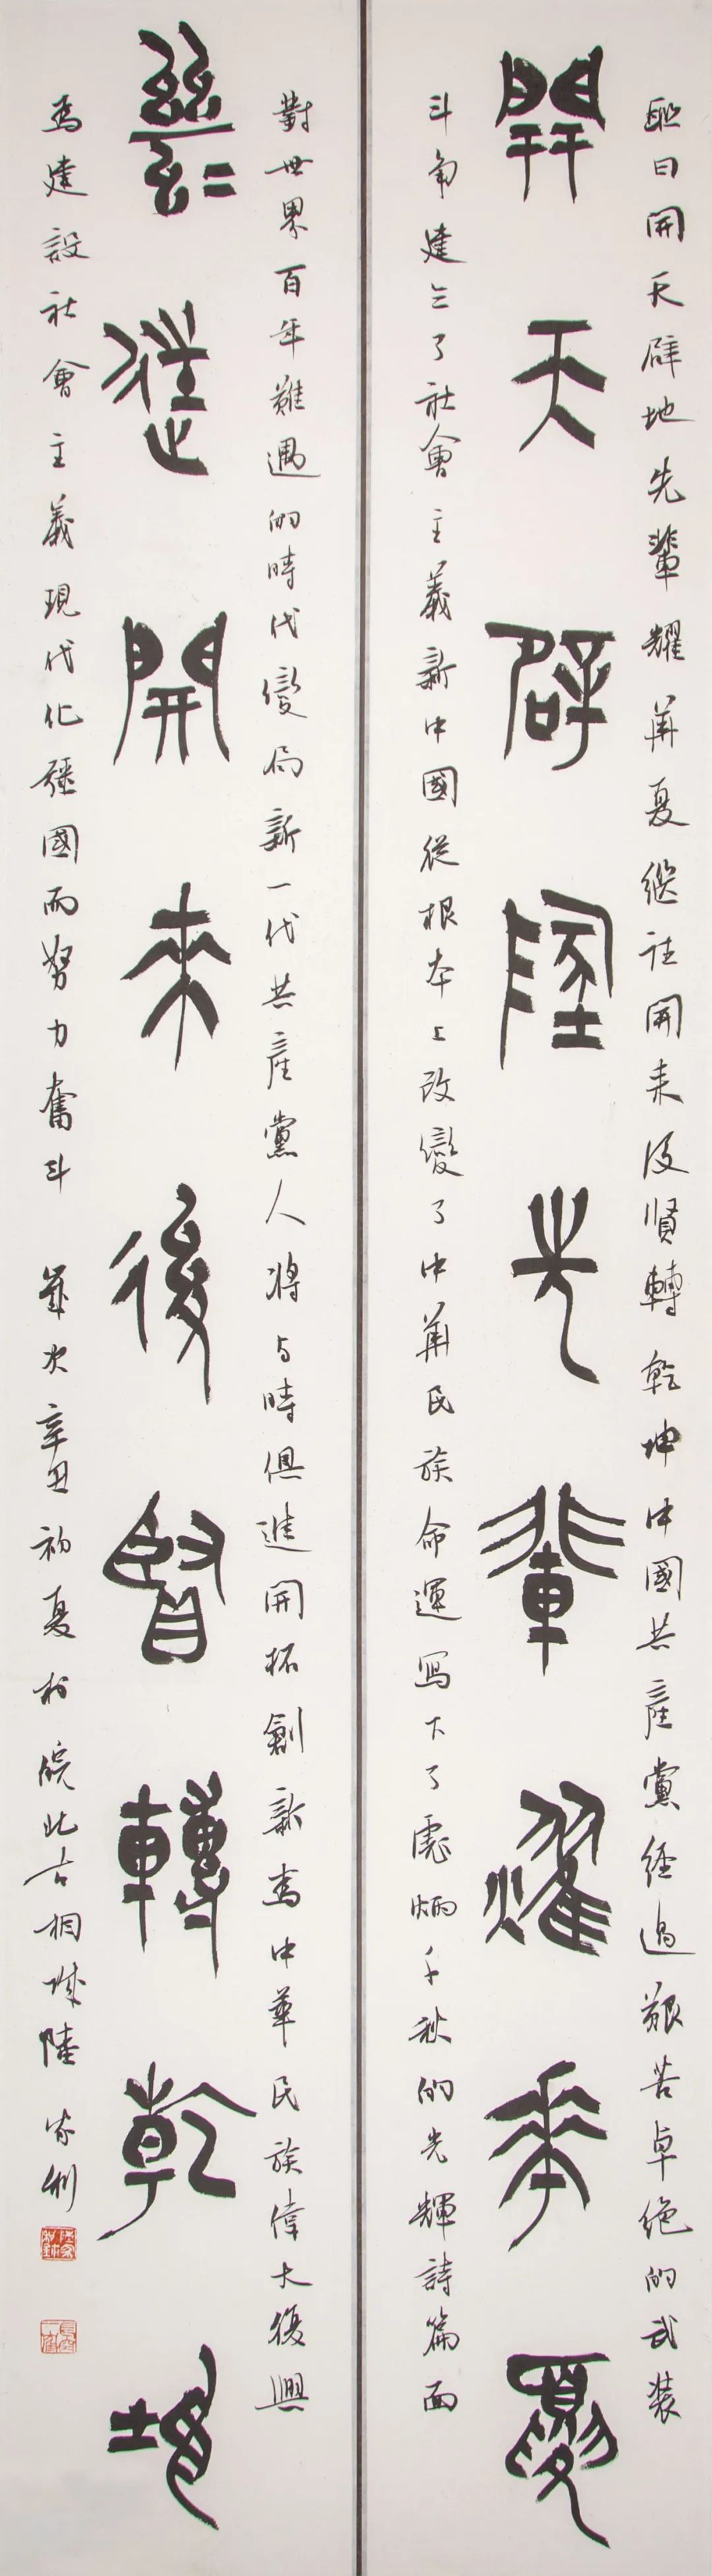 聯曰開天辟地先輩耀華夏繼往開来後賢轉乾坤中國共產黨經過艱苦卓绝的武装
開天辟地先輩耀華夏
斗争建立了社會主義新中國從根本上改變了中華民族命運寫下了彪炳千秋的光輝詩篇面
對世界百年難遇的時代變局新一代共產黨人將与時俱進開拓創新為中華民族偉大復興
繼往開來後賢轉乾坤
為建設社會主義現代化彊國而努力奮斗 歲次辛丑初夏於皖北古相城陸家